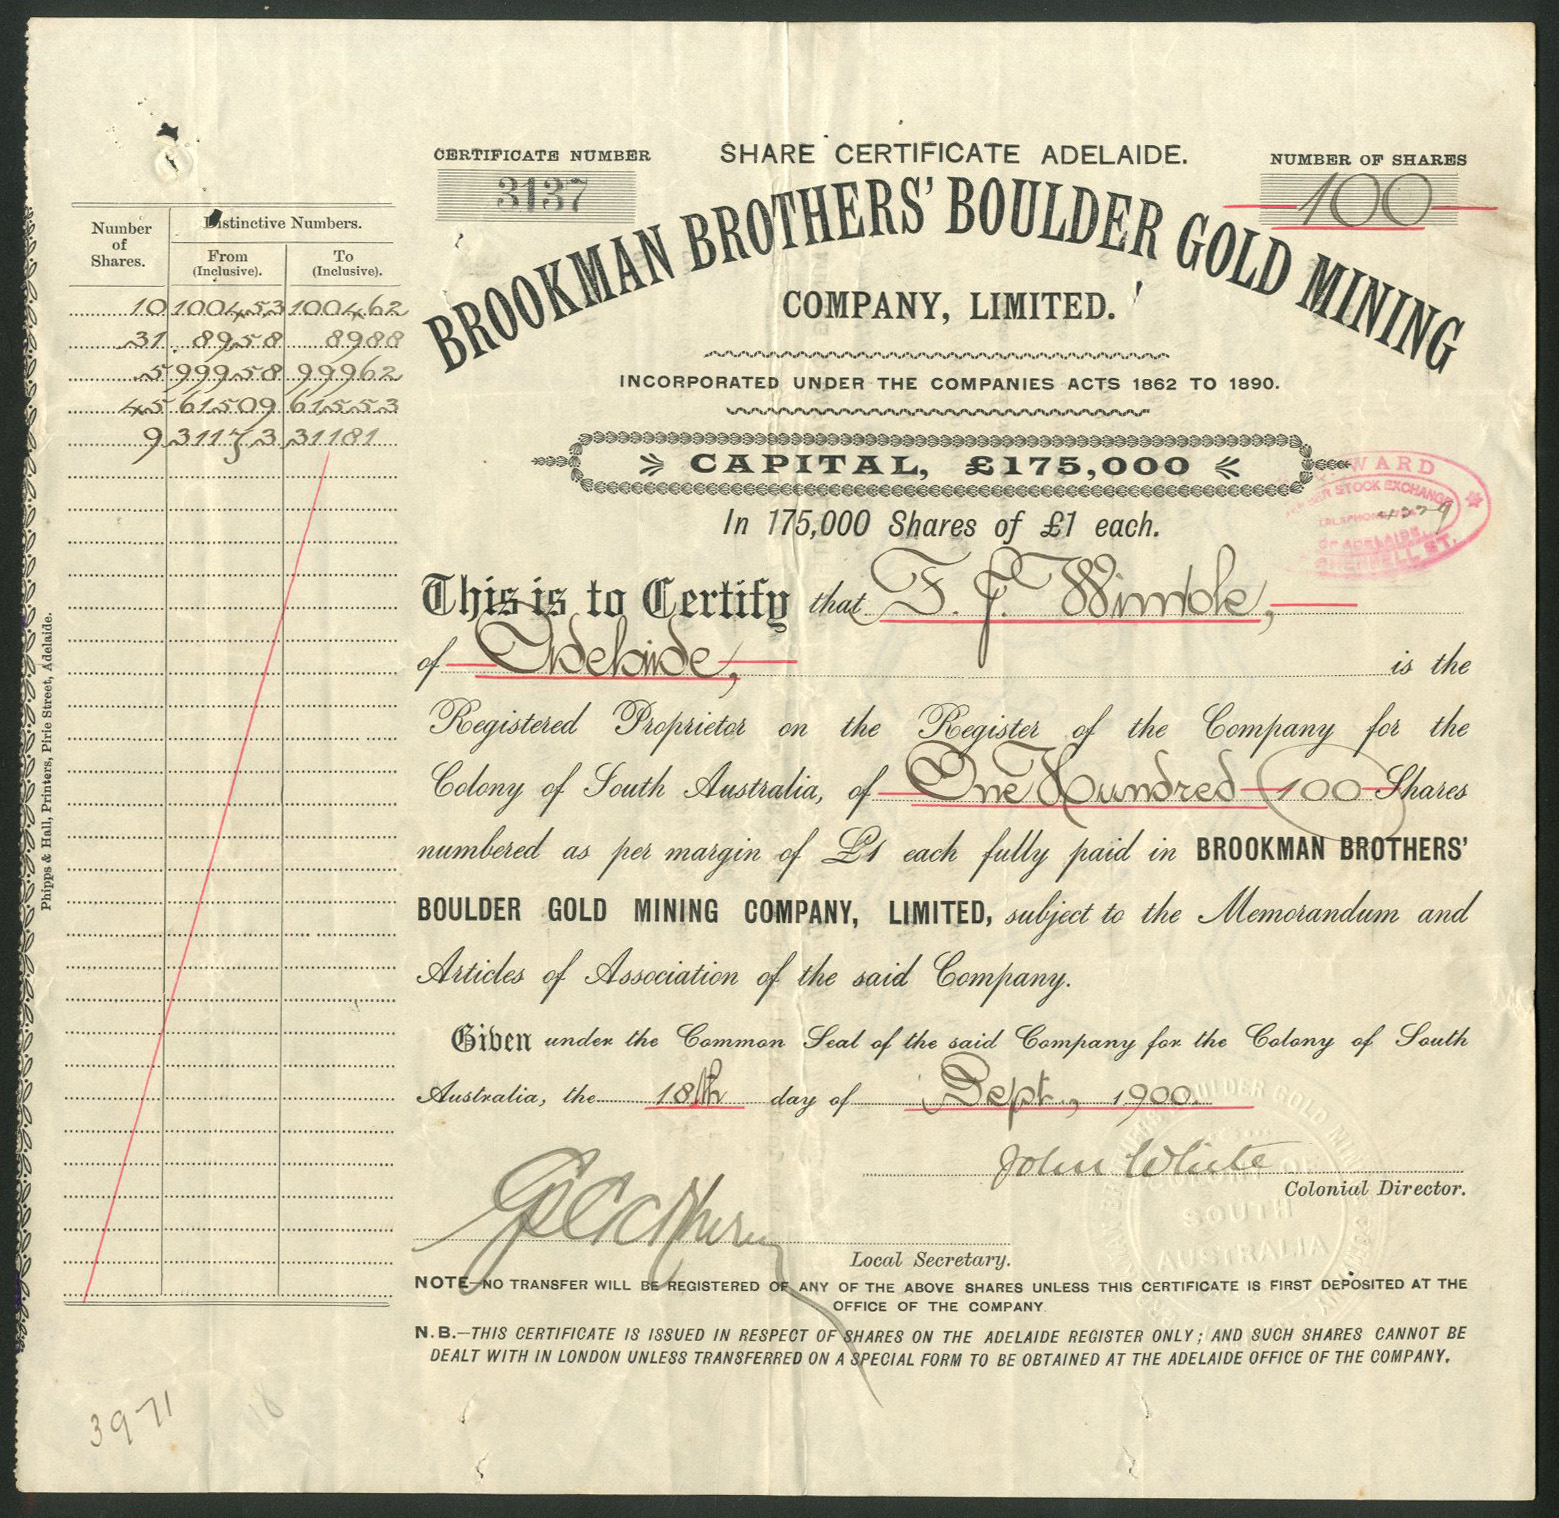 CERTIFICATE NUMBER
3137
SHARE CERTIFICATE ADELAIDE.
NUMBER OF SHARES
100
BROOKMAN BROTHERS' BOULDER GOLD MINING
COMPANY, LIMITED.
INCORPORATED UNDER THE COMPANIES ACTS 1862 TO 1890.
CAPITAL, £175,000
In 175,000 Shares of £1 each.
WARD
STOCK EXCHANGE
OF ADELAIDE
GRENFELL ST.
This is to Certify that F. J. Wimble,
of Adelaide, is the
Registered Proprietor on the Register of the Company for the
Colony of South Australia, of One Hundred 100 Shares
numbered as per margin of £1 each fully paid in BROOKMAN BROTHERS'
BOULDER GOLD MINING COMPANY, LIMITED, subject to the Memorandum and
Articles of Association of the said Company.
Given under the Common Seal of the said Company for the Colony of South
Australia, the 18th day of Sept., 1900.
John White
Colonial Director.
Local Secretary.
SOUTH
AUSTRALIA
NOTE—NO TRANSFER WILL BE REGISTERED OF ANY OF THE ABOVE SHARES UNLESS THIS CERTIFICATE IS FIRST DEPOSITED AT THE
OFFICE OF THE COMPANY
N.B.—THIS CERTIFICATE IS ISSUED IN RESPECT OF SHARES ON THE ADELAIDE REGISTER ONLY; AND SUCH SHARES CANNOT BE
DEALT WITH IN LONDON UNLESS TRANSFERRED ON A SPECIAL FORM TO BE OBTAINED AT THE ADELAIDE OFFICE OF THE COMPANY.
Number of Shares. Distinctive Numbers.
From (Inclusive). To (Inclusive).
10 100453 100462
31 8958 8988
5 99958 99962
45 61509 61553
9 31173 31181
Phipps & Hall, Printers, Pirie Street, Adelaide.
3971